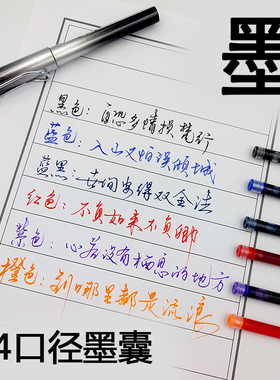 墨
黑色：自恐多情损梵行
蓝色：入山又怕误倾城
蓝黑：世间安得双全法
红色：不负如来不负卿
紫色：心若没有栖息的地方
橙色：到哪里都是流浪
4口径墨囊